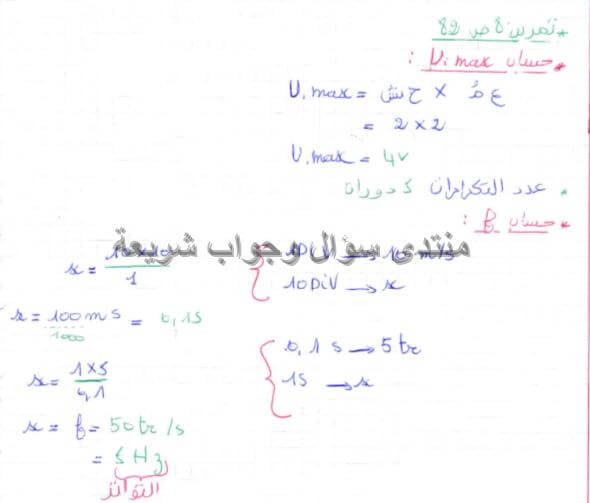 * تمرين 8 ص 82
* حساب U.max :
U.max = ح ش × ع مُ
= 2 × 2
U.max = 4v
• عدد التكرارات 5 دورات
* حساب f :
منتدى سؤال وجواب شريعة
x = 10×10 / 1
1DiV → 10 m/s
10DiV → x
x = 100 ms / 1000 = 0,1s
0,1 s → 5 tr
1s → x
x = 1×5 / 0,1
x = f = 50 tr/s
= 5 Hz
التواتر